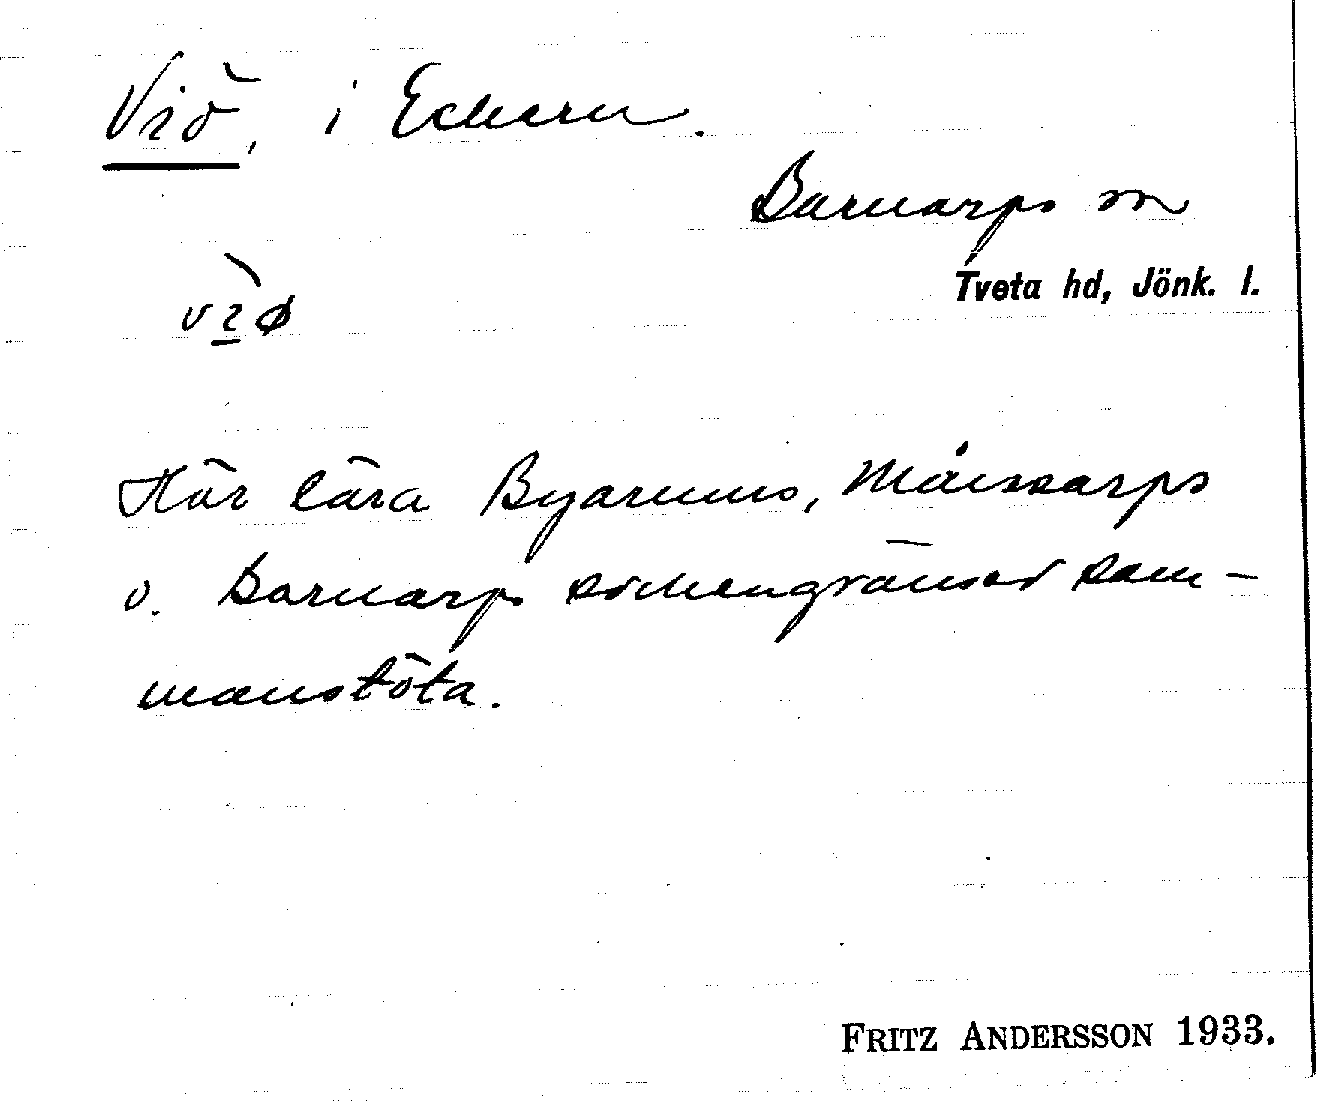 Viö, i Eckern.
Barnarps sn
Tveta hd, Jönk. l.
Här lära Byarums, Månsarps
o. Barnarps sockengränser sam-
manstöta.
FRITZ ANDERSSON 1933.